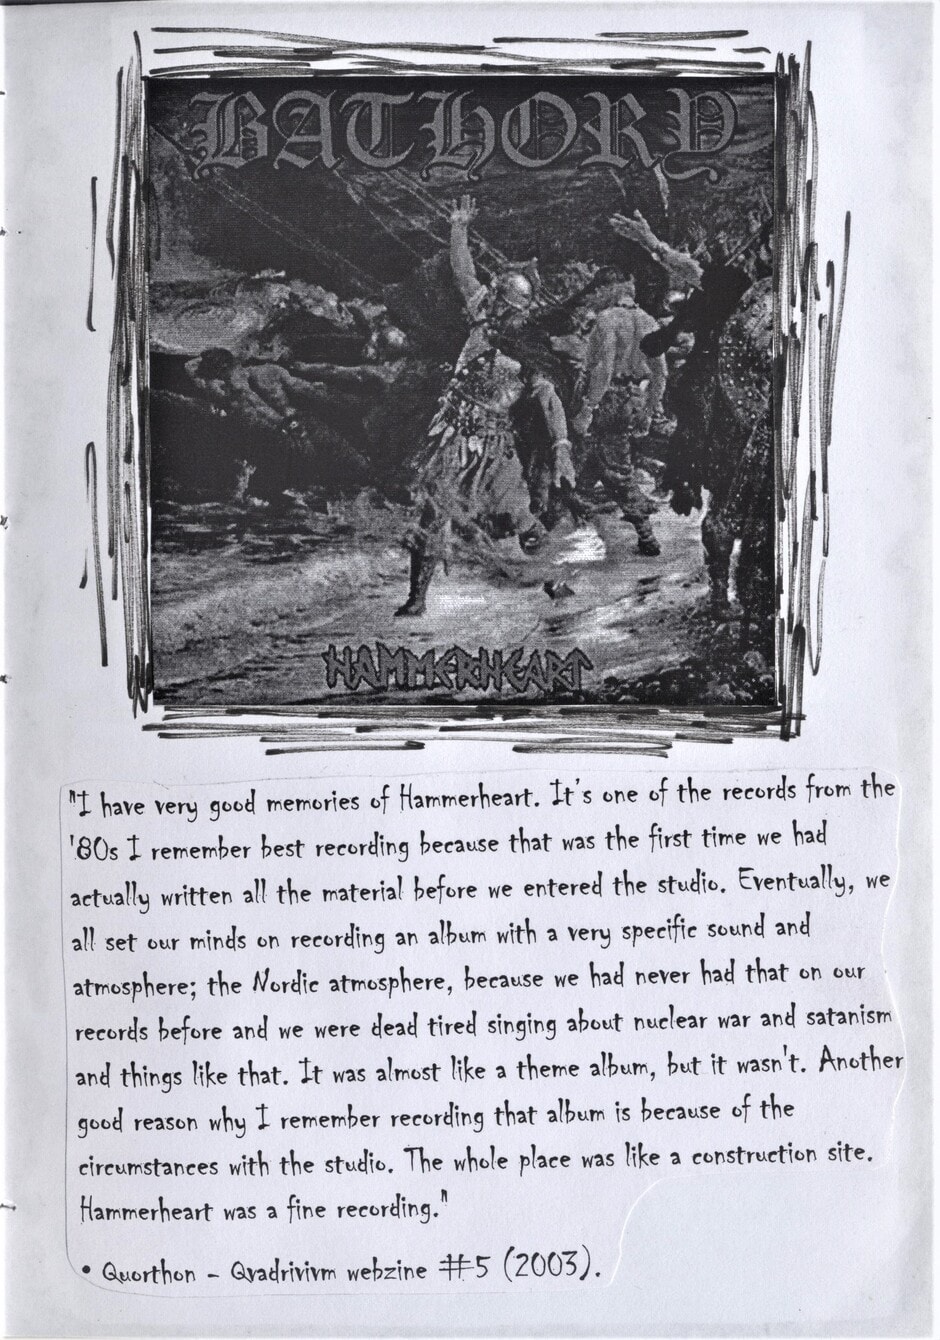 BATHORY
HAMMERHEART
"I have very good memories of Hammerheart. It's one of the records from the
'80s I remember best recording because that was the first time we had
actually written all the material before we entered the studio. Eventually, we
all set our minds on recording an album with a very specific sound and
atmosphere; the Nordic atmosphere, because we had never had that on our
records before and we were dead tired singing about nuclear war and satanism
and things like that. It was almost like a theme album, but it wasn't. Another
good reason why I remember recording that album is because of the
circumstances with the studio. The whole place was like a construction site.
Hammerheart was a fine recording."
• Quorthon - Qvadrivivm webzine #5 (2003).